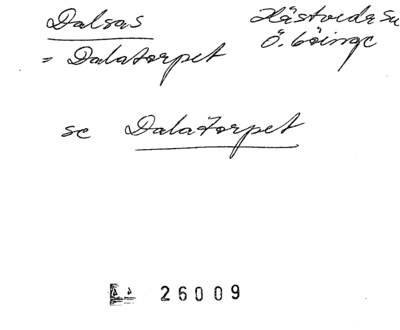 Dalsas
Hästveda sn
= Dalatorpet
Ö. Göinge
se Dalatorpet
26009